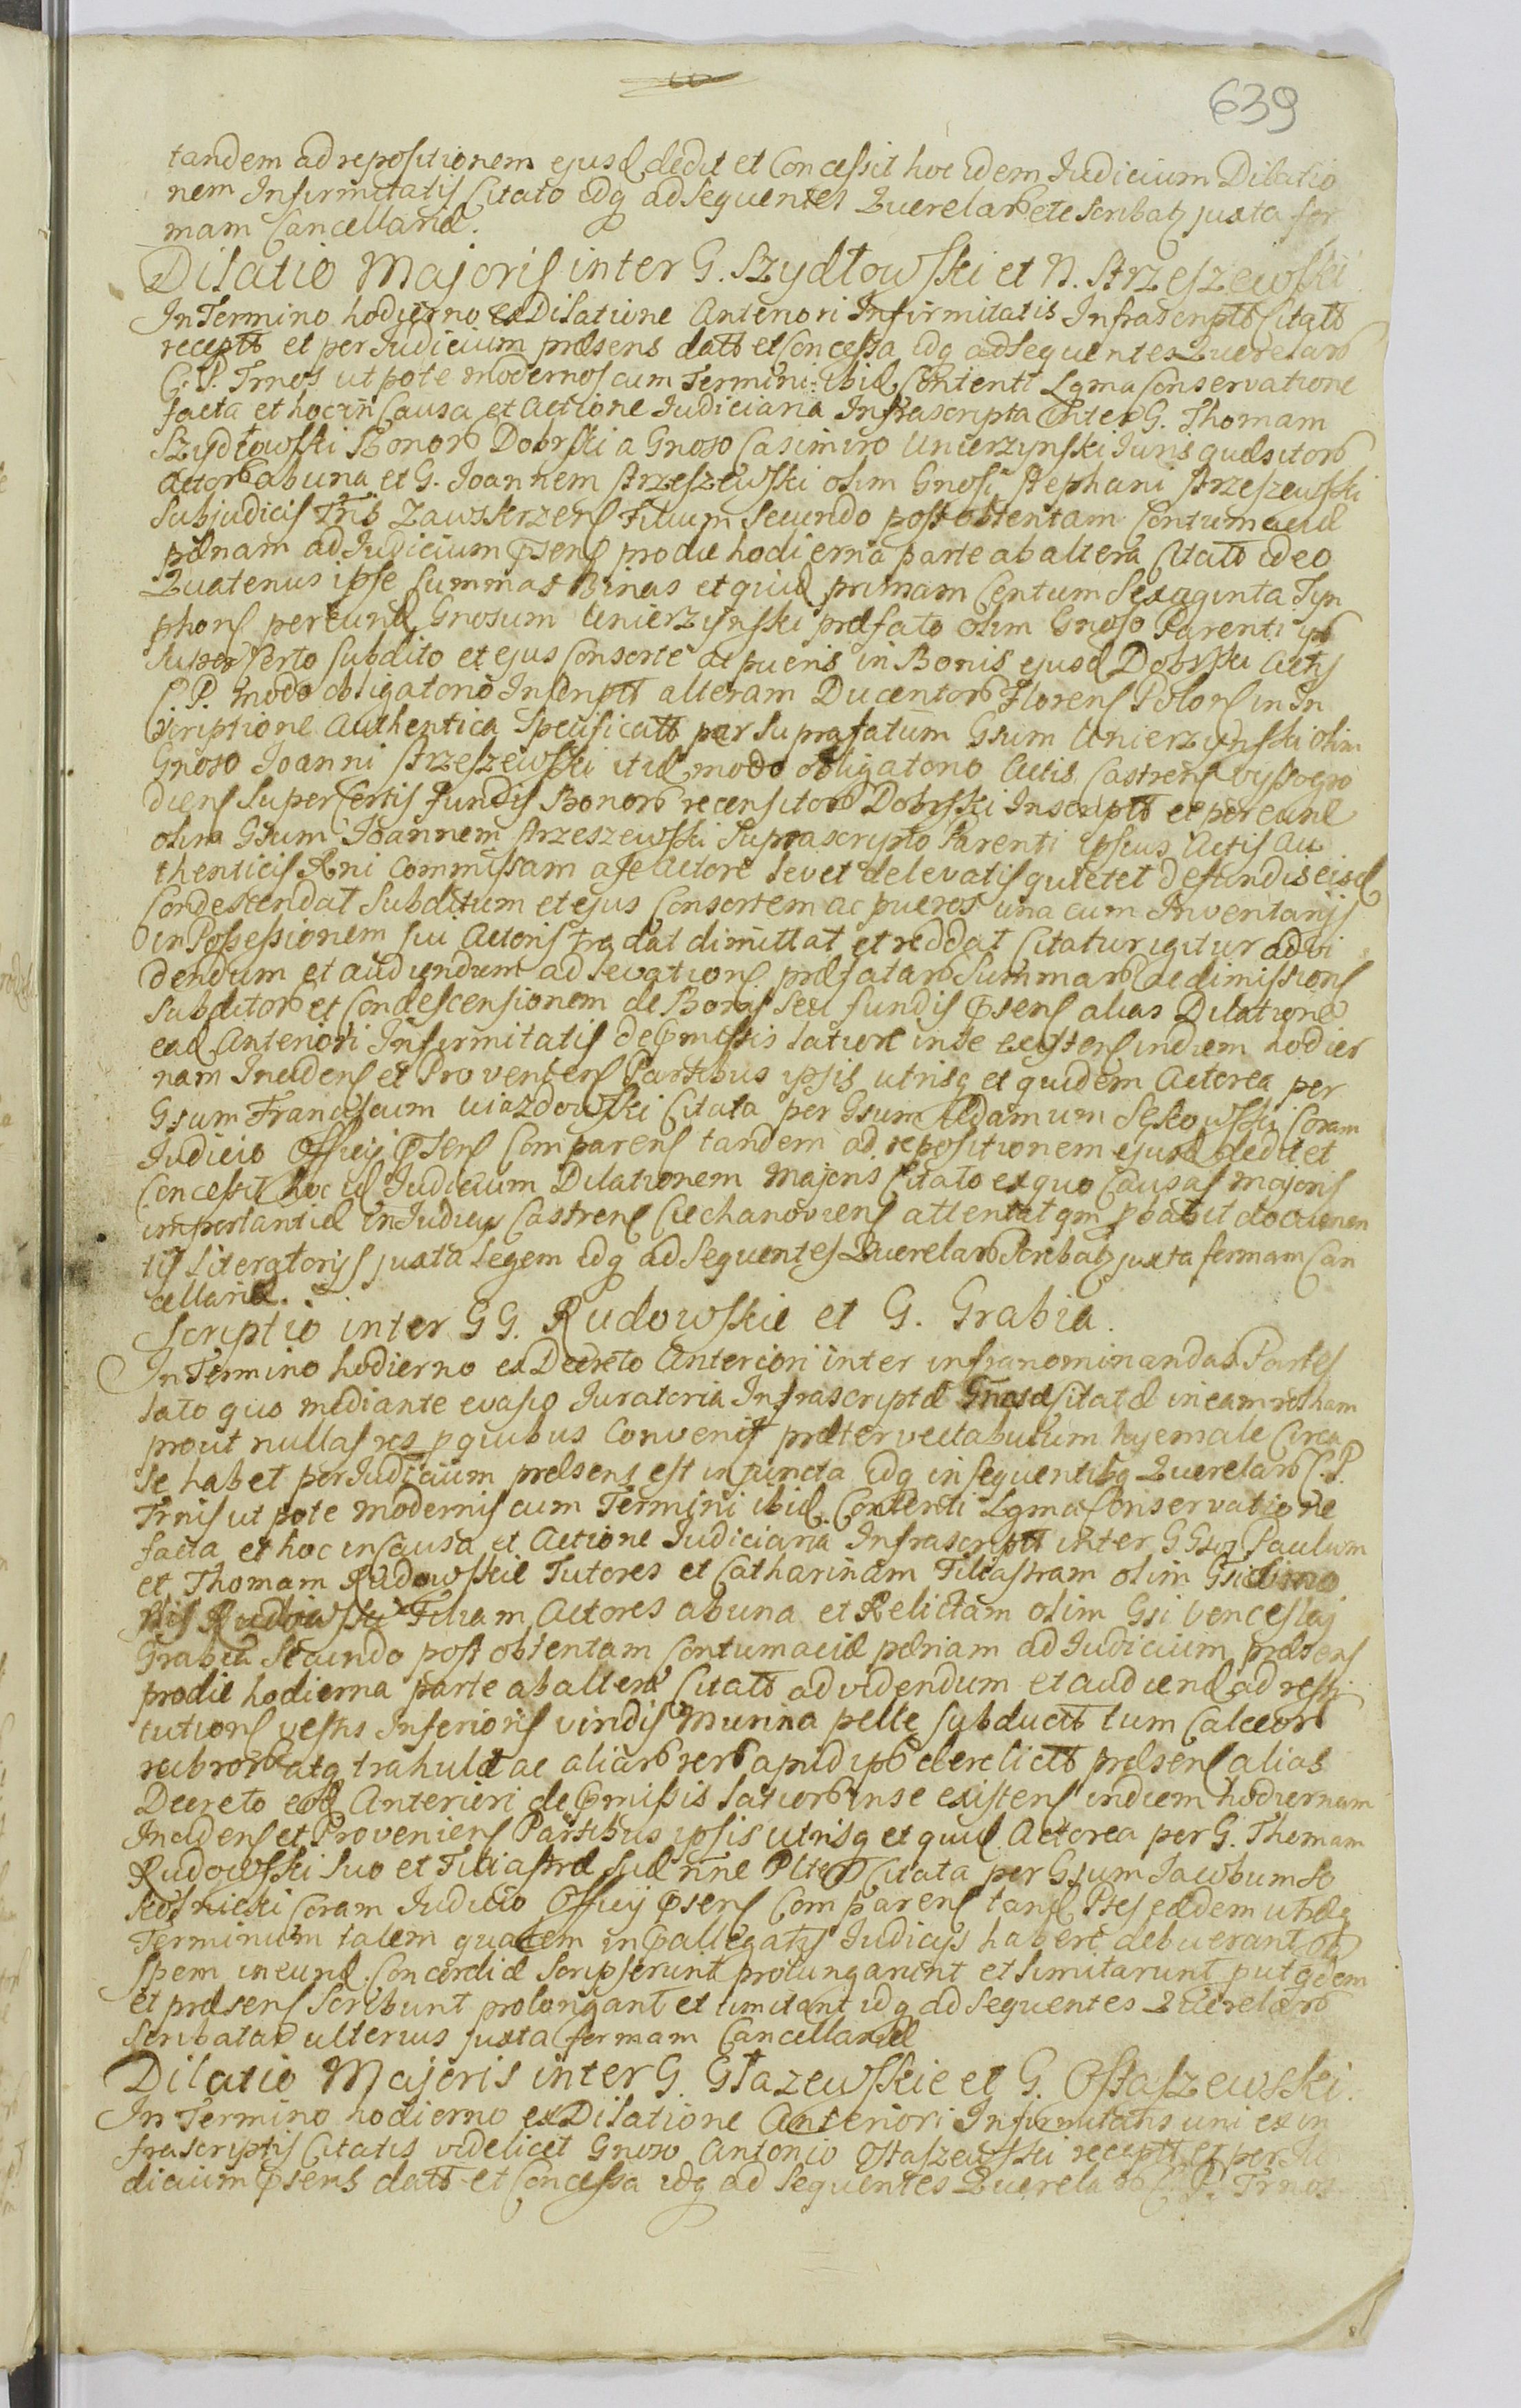 639
tandem ad repositionem ejusd dedit et Concessit hoc idem Judicium Dilatio
nem Infirmitatis Citato idq ad Sequentes Querelar etc Scribatz juxta for
mam Cancellariæ.
Dilatio Majoris inter G. Szydłowski et N. Strzeszewski
In Termino hodierno ex Dilatione Anteriori Infirmitatis Infrascriptt Citatt
receptt et per Judicium præsens datt et Concessa idq ad Sequentes Querelar
C. P. Trnos ut pote modernos cum Termini ibid Contenti Lgma Conservatione
facta et hoc in Causa et Actione Judiciaria Infrascripta inter G. Thomam
Szydłowski Bonor Dobrski a Gnoso Casimiro Unierzynski Juris quæsitor
Actor ab una et G. Joannem Strzeszewski olim Gnosi Stephani Strzeszewski
Subjudicis Tris Zawskrzens Filium Secundo post obtentam Contumaciæ
pænam ad Judicium Psens pro die hodierna parte ab altera Citatt ideo
Quatenus ipse Summas Binas et quid primam Centum Sexaginta Tyn
phons per eund Gnosum Unierzynski præfato olim Gnoso Parenti ips
super Certo Subdito et ejus Consorte ac pueris in Bonis ejusd Dobrski Actis
C. P. modo obligatorio Inscriptt alteram Ducentor Florens Polons in In
scriptione Authentica Specificatt per Suprafatum Gsum Unierzynski olim
Gnoso Joanni Strzeszewski itid modo obligatorio Actis Castrens Wyssogro
diens Super Certis fundis Bonor recensitor Dobrski Inscriptt et per eund
olim Gsum Joannem Strzeszewski Suprascripto Parenti ipsius Actis Au
thenticis Rni Commissam a se Actore levet de levatis quietet de fundis eisd
Condescendat Subditum et ejus Consortem ac pueros una cum Inventarijs
in Possessionem sui Actoris tradat dimittat et reddat Citatur igitur ad vi
dendum et audiendum ad levations præfatar Summar ac dimissions
Subditor et Condescensionem de Bonis seu fundis Psens alias Dilatione
ead Anteriori Infirmitatis de Pmissis latiore in se existens in diem hodier
nam Incidens et Proveniens Partibus ipsis utrisq et quidem Actorea per
Gsum Franciscum Uiazdowski Citata per Gsum Adamum Sękowski Coram
Judicio Officij Psens Comparens tandem ad repositionem ejusd dedit et
Concessit hoc id Judicium Dilationem Majoris Citato ex quo Causas majoris
importantiæ in Judicijs Castrens Ciechanoviens attentat qm pbabit documen
tis literatorijs juxta Legem idq ad Sequentes Querelar Scribatz juxta formam Can
cellariæ.
Scriptio inter GG. Rudowskie et G. Grabia.
In Termino hodierno ex Decreto Anteriori inter infranominandas Partes
lato quo mediante evasio Juratoria Infrascriptæ Gnosæ Citatæ in eam rotham
prout nullas res pquibus Convenit præter vectabulum hyemale Circa
se habet per Judicium præsens est injuncta idq in Sequentibq Querelar C. P.
Trnis ut pote modernis cum Termini ibid Contenti Lgma Conservatione
facta et hoc in Causa et Actione Judiciaria Infrascriptt inter GGsos Paulum
et Thomam Rudowskie Tutores et Catharinam Filiastram olim Gsi
Rudowski Filiam Actores ab una et Relictam olim Gsi Venceslaj
Grabia Secundo post obtentam Contumaciæ pænam ad Judicium præsens
pro die hodierna parte ab altera Citatt ad videndum et audiend ad resti
tutions vestis Inferioris viridis Murina pelle subductt tum Calceor
rubror atq trahulæ ac aliar rer apud ips derelictt præsens alias
Decreto eod Anteriori de Pmissis latior in se existens in diem hodiernam
Incidens et Proveniens Partibus ipsis utrisq et quid Actorea per G. Thomam
Rudowski Suo et Filiastræ suæ nne Citata per Gsum Jacobum So
kolnicki Coram Judicio Officij Psens Comparens tand Ptes eædem utræq
Terminum talem qualem in Pallegatis Judicijs habere debuerant ob
spem ineund Concordiæ Scripserunt prolungarunt et limitarunt put qdem
et præsens Scribunt prolongant et limitant idq ad Sequentes Querelar
Scribatur ulterius juxta formam Cancellariæ
Dilatio Majoris inter G. Głazewskie et G. Ostaszewski.
In Termino hodierno ex Dilatione Anteriori Infirmitatis uni ex in
frascriptis Citatis videlicet Gnoso Antonio Ostaszewski receptt et per Ju
dicium Psens datt et Concessa idq ad Sequentes Querelar C. P. Trnos